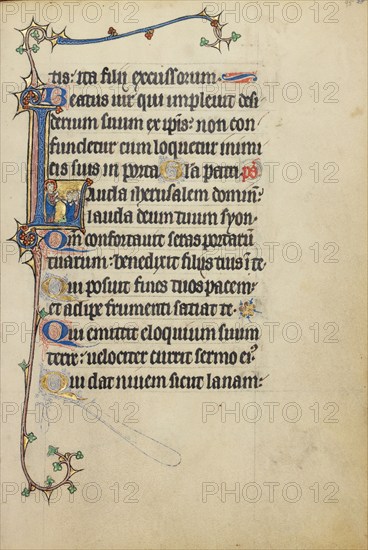 tis: ita filij excussorum.
Beatus uir qui impleuit desi
derium suum ex ipsis: non con
fundetur cum loquetur inimi
cis suis in porta. Gła patri. ps
Lauda iherusalem dominū:
lauda deum tuum syon.
Qm̄ confortauit seras portarū
tuarum: benedixit filijs tuis ī te.
Qui posuit fines tuos pacem:
et adipe frumenti satiat te.
Qui emittit eloquium suum
terre: uelociter currit sermo eiꝰ.
Qui dat niuem sicut lanam:
PHOTO 12